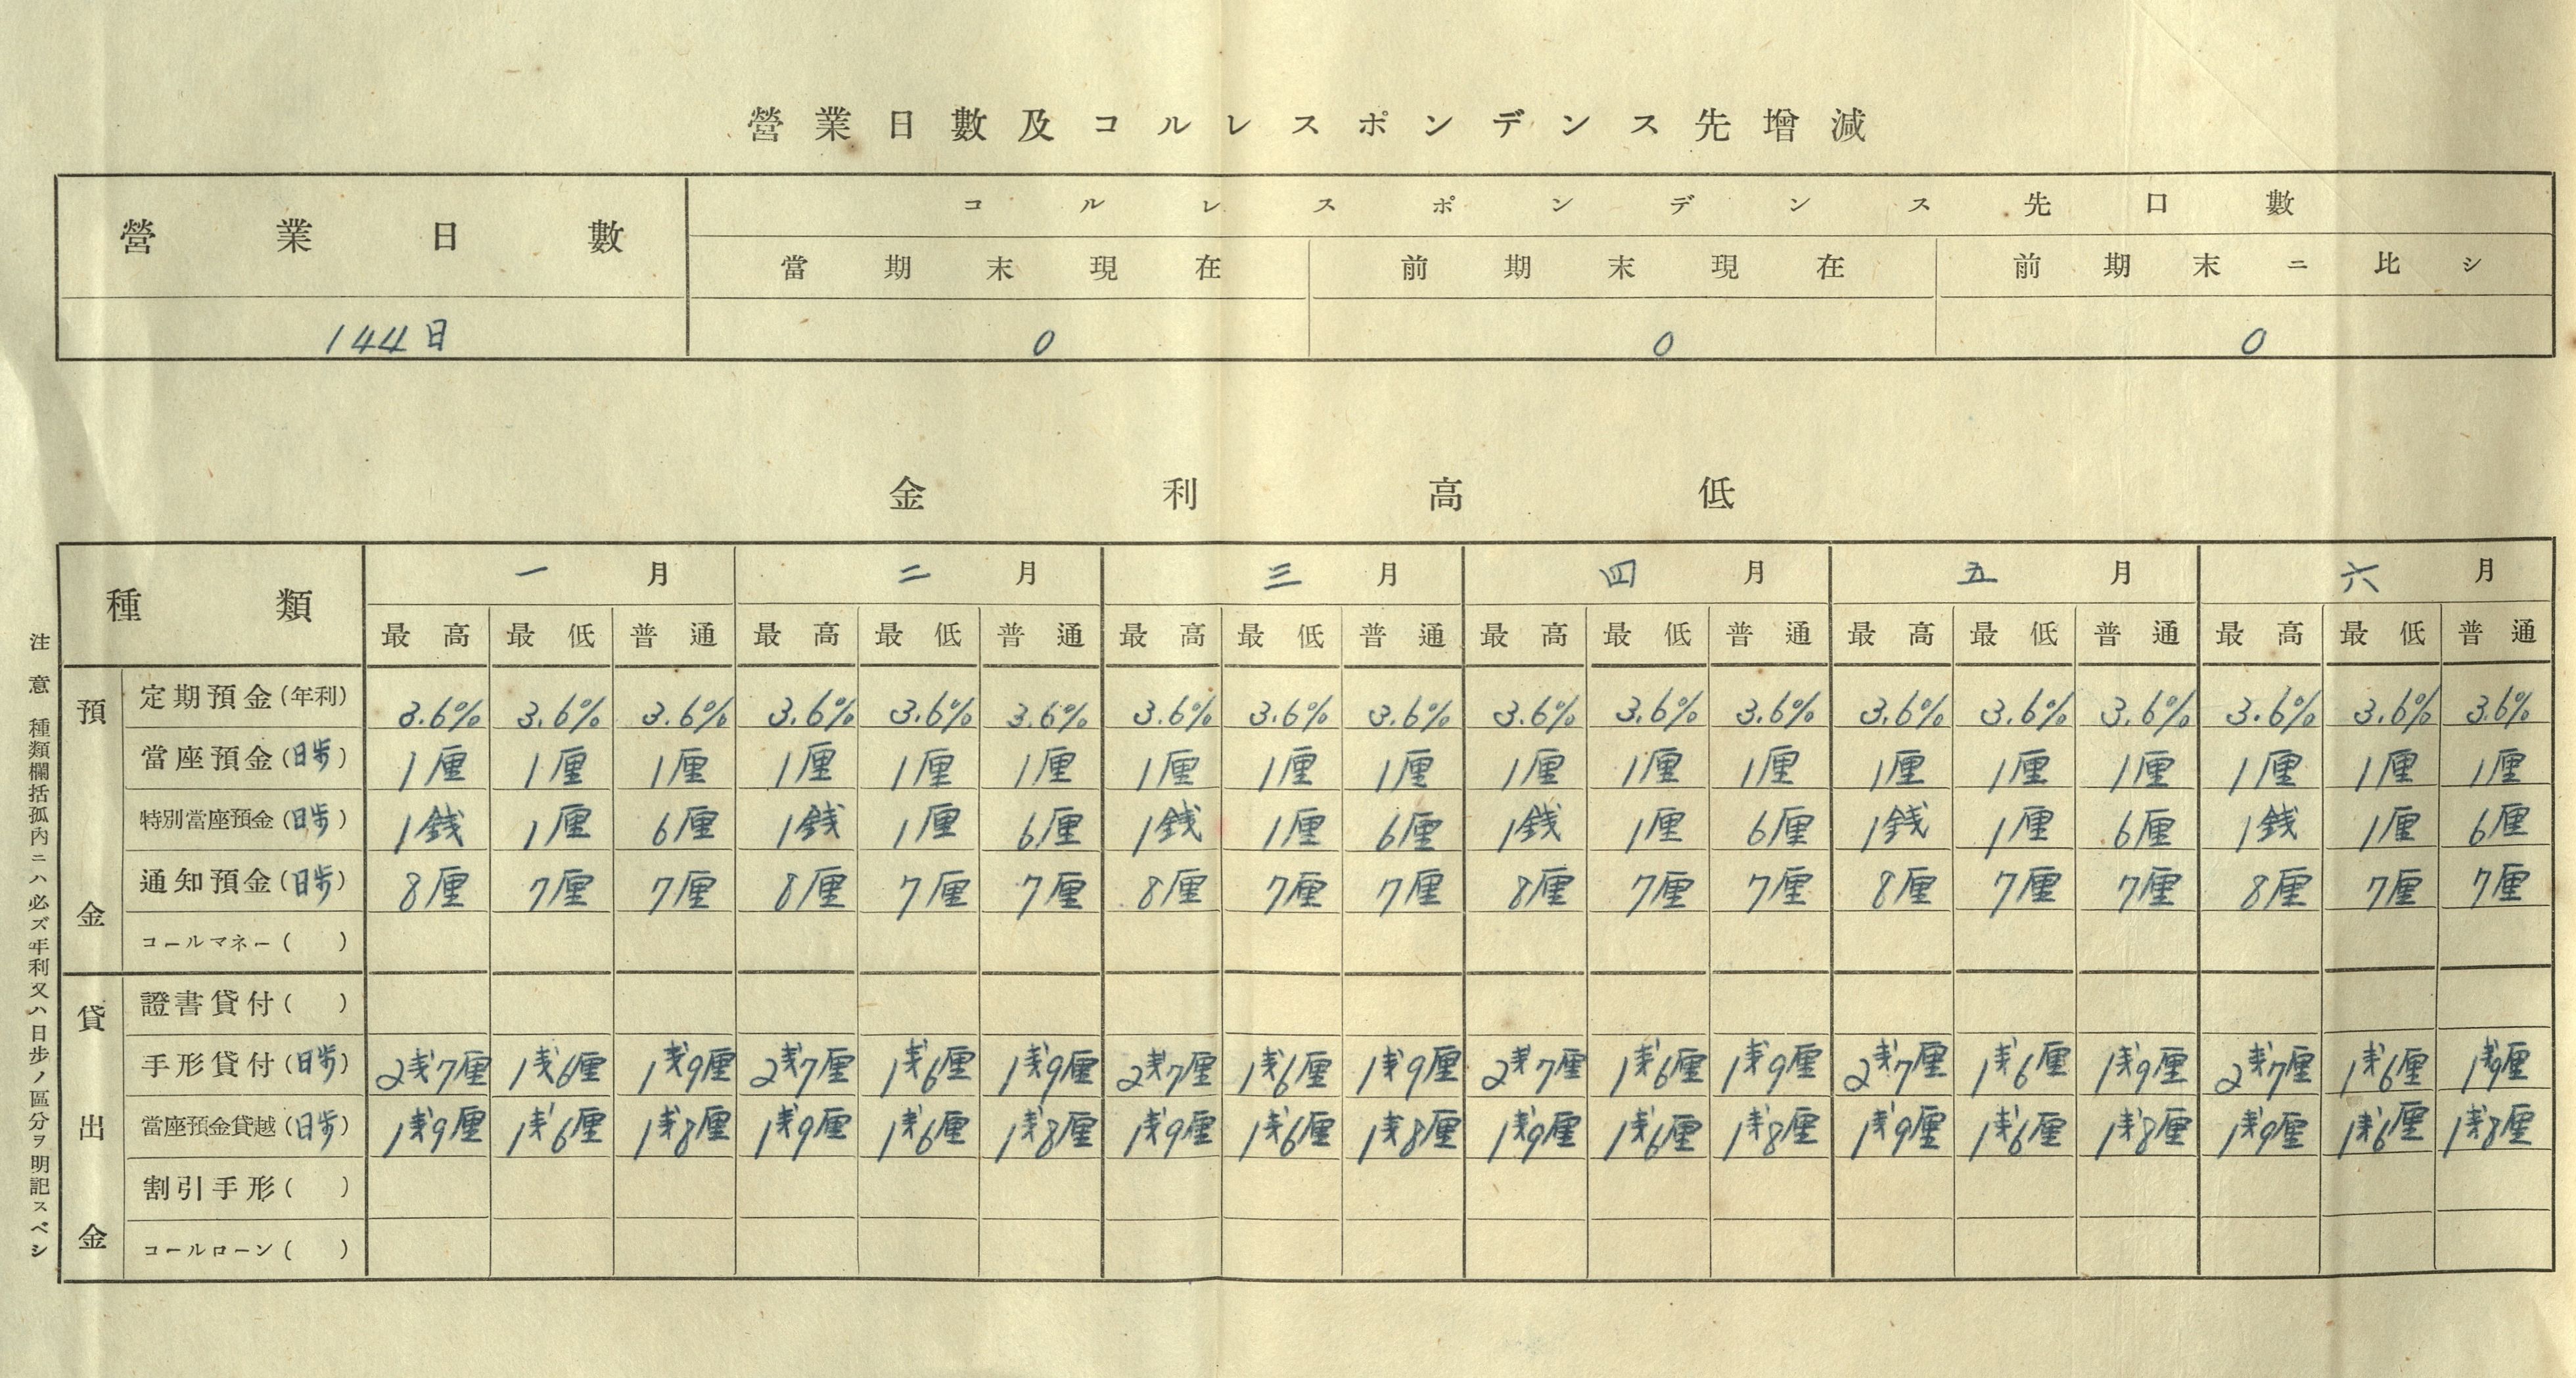 營業日數及コルレスポンデンス先增減
營業日數 コルレスポンデンス先口數
當期末現在 前期末現在 前期末ニ比シ
144日 0 0 0
金利高低
種類 一月 二月 三月 四月 五月 六月
最高 最低 普通 最高 最低 普通 最高 最低 普通 最高 最低 普通 最高 最低 普通 最高 最低 普通
預金
定期預金(年利) 3.6% 3.6% 3.6% 3.6% 3.6% 3.6% 3.6% 3.6% 3.6% 3.6% 3.6% 3.6% 3.6% 3.6% 3.6% 3.6% 3.6% 3.6%
當座預金(日步) 1厘 1厘 1厘 1厘 1厘 1厘 1厘 1厘 1厘 1厘 1厘 1厘 1厘 1厘 1厘 1厘 1厘 1厘
特別當座預金(日步) 1銭 1厘 6厘 1銭 1厘 6厘 1銭 1厘 6厘 1銭 1厘 6厘 1銭 1厘 6厘 1銭 1厘 6厘
通知預金(日步) 8厘 7厘 7厘 8厘 7厘 7厘 8厘 7厘 7厘 8厘 7厘 7厘 8厘 7厘 7厘 8厘 7厘 7厘
コールマネー( )
貸出金
證書貸付( )
手形貸付(日步) 2戋7厘 1戋6厘 1戋9厘 2戋7厘 1戋6厘 1戋9厘 2戋7厘 1戋6厘 1戋9厘 2戋7厘 1戋6厘 1戋9厘 2戋7厘 1戋6厘 1戋9厘 2戋7厘 1戋6厘 1戋9厘
當座預金貸越(日步) 1戋9厘 1戋6厘 1戋8厘 1戋9厘 1戋6厘 1戋8厘 1戋9厘 1戋6厘 1戋8厘 1戋9厘 1戋6厘 1戋8厘 1戋9厘 1戋6厘 1戋8厘 1戋9厘 1戋6厘 1戋8厘
割引手形( )
コールローン( )
注意 種類欄括孤內ニハ必ズ年利又ハ日步ノ區分ヲ明記スベシ